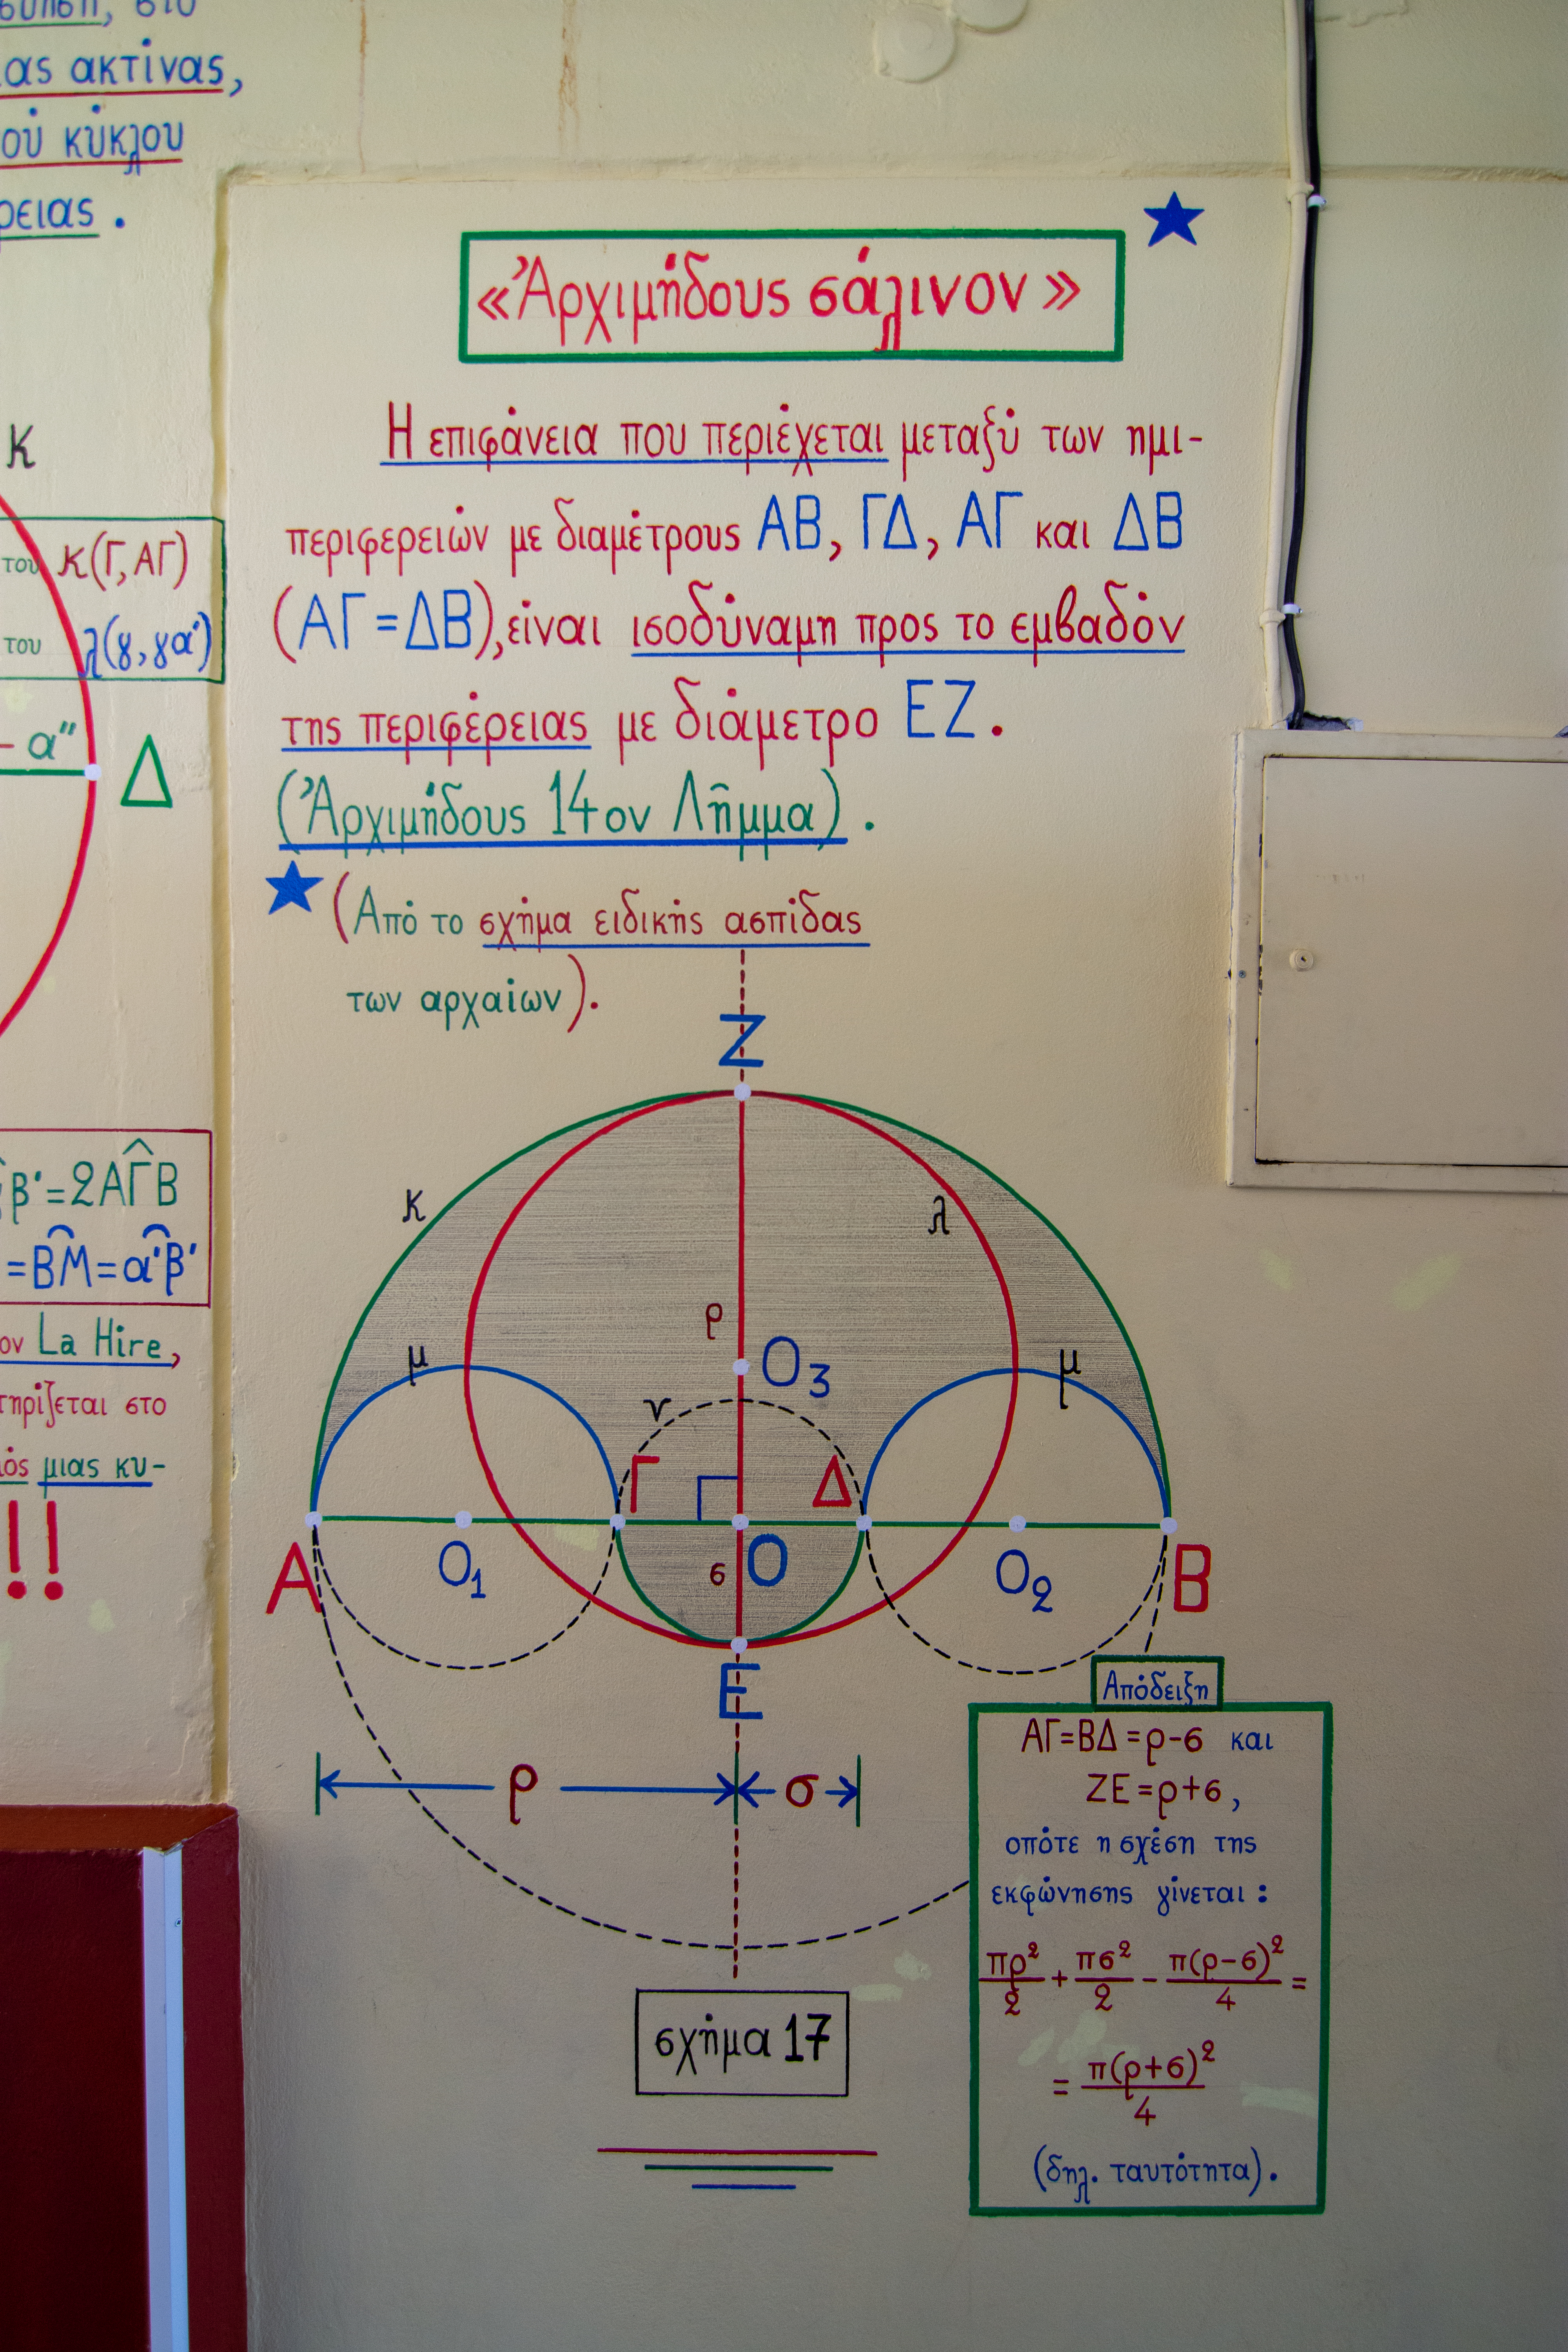 ας ακτίνας,
ού κύκλου
ρειας.
Κ
του κ(Γ, ΑΓ)
του λ(γ, γα')
α'' Δ
β'=2ΑΓ̂Β
=ΒΜ=α'β'
ον La Hire,
τηρίζεται στο
μιας κυ-
!!
«Ἀρχιμήδους σάλινον»
Η επιφάνεια που περιέχεται μεταξύ των ημι-
περιφερειών με διαμέτρους ΑΒ, ΓΔ, ΑΓ και ΔΒ
(ΑΓ=ΔΒ), είναι ισοδύναμη προς το εμβαδόν
της περιφέρειας με διάμετρο ΕΖ.
(Ἀρχιμήδους 14ον Λῆμμα).
(Από το σχήμα ειδικής ασπίδας
των αρχαίων).
Ζ
κ λ
ρ
μ Ο3 μ
ν
Γ Δ
Α Ο1 σ Ο Ο2 Β
Ε
ρ σ
σχήμα 17
Απόδειξη
ΑΓ=ΒΔ=ρ-σ και
ΖΕ=ρ+σ,
οπότε η σχέση της
εκφώνησης γίνεται:
πρ²/2 + πσ²/2 - π(ρ-σ)²/4 =
= π(ρ+σ)²/4
(δηλ. ταυτότητα).